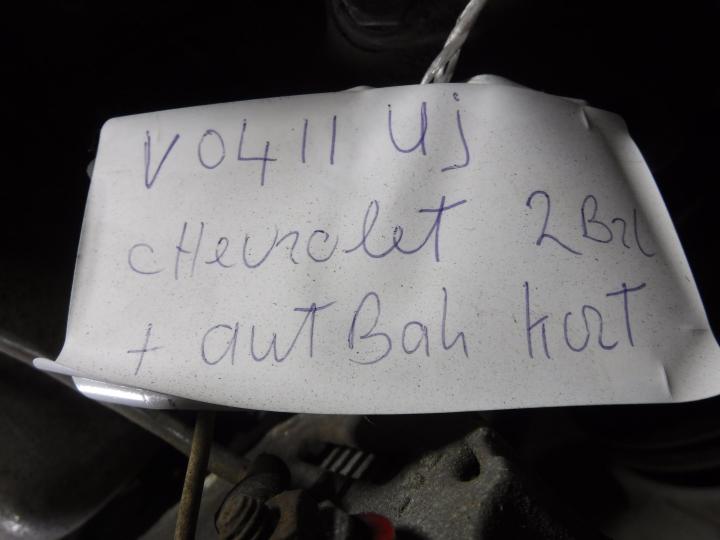 V0411 Uj
cHevrolet 2Brl
+ autBak kort